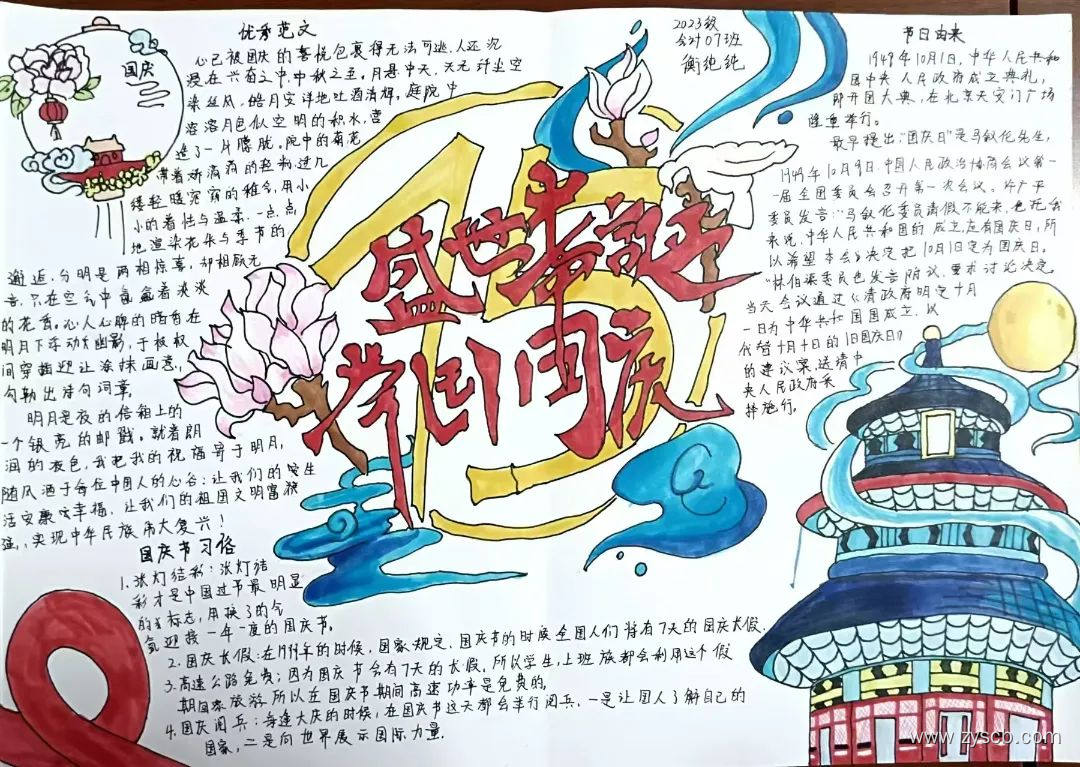 国庆
优秀范文
心已被国庆的喜悦包裹得无法可逃,人还沉
浸在兴奋之中,中秋之至。月悬中天,天无纤尘空
染丝风,皓月安详地吐洒清辉。庭院中
溶溶月色似空明的积水,营
造了一片朦胧。院中的菊花
带着娇滴滴的
缕轻暖宛
小的着性与温柔,一点点
地渲染花朵与季节的
邂逅,分明是两相惊喜,却相顾无
言,只在空气中氤氲着淡淡
的花香。沁人心脾的暗香在
明月下浮动幽影,于枝桠
间穿插迎让涂抹画意,
勾勒出诗句词章。
明月是夜的信笺上的
一个银亮的邮戳。就着朗
润的夜色,我把我的祝福寄于明月,
随风洒于每位中国人的心谷:让我们的生
活安康幸福,让我们的祖国文明富
强,实现中华民族伟大复兴!
2023级
会计07班
衡纯纯
盛世华诞
举国同庆
75
节日由来
1949年10月1日,中华人民共和
国中央人民政府成立典礼,
即开国大典,在北京天安门广场
隆重举行。
最早提出“国庆日”是马叙伦先生,
1949年10月9日,中国人民政治协商会议第一
届全国委员会召开第一次会议。许广平
委员发言:“马叙伦委员请假不能来,他托我
来说,中华人民共和国的成立应有国庆日,所
以希望本会决定把10月1日定为国庆日。
“林伯渠委员也发言附议,要求讨论决定
当天会议通过《请政府明定十月
一日为中华共和国国成立,以
代替十月十日的旧国庆日》
的建议案,送请中
央人民政府采
择施行。
国庆节习俗
1.张灯结彩:张灯结
彩才是中国过节最明显
的标志,用换了的气
氛迎接一年一度的国庆节。
2.国庆长假:在1999年的时候,国家规定,国庆节的时候全国人们将有7天的国庆长假.
3.高速公路免费:因为国庆节会有7天的长假,所以学生,上班族都会利用这个假
期自家旅游,所以在国庆节期间高速功率是免费的.
4.国庆阅兵:每逢大庆的时候,在国庆节这天都会举行阅兵,一是让国人了解自己的
国家,二是向世界展示国际力量.
www.zyscb.com